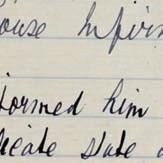 ouse Infirm
formed him
licate state